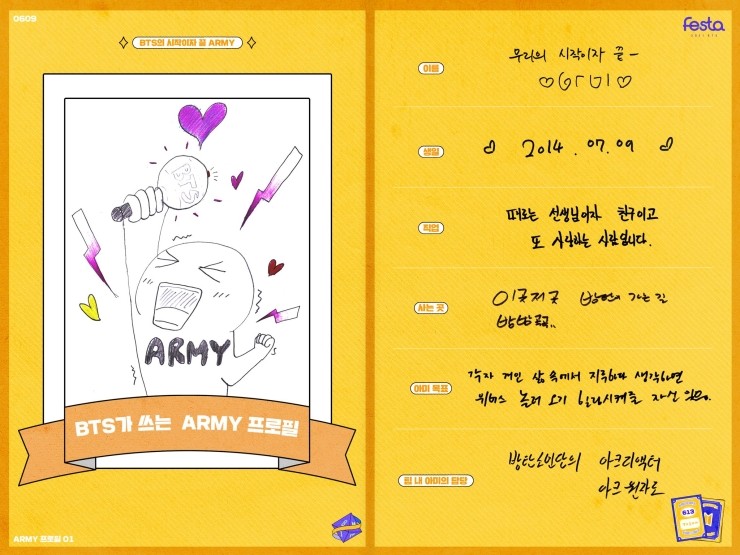 0609
BTS의 시작이자 끝 ARMY
BTS
ARMY
BTS가 쓰는 ARMY 프로필
ARMY 프로필 01
festa
이름
우리의 시작이자 끝 -
아미
생일
2014. 07. 09
직업
때로는 선생님이자 친구이고
또 사랑하는 사람입니다.
사는 곳
이곳저곳 방탄이 가는 길
방방곡곡..
아미 목표
각자 개인 삶 속에서 지루하다 생각하면
위버스 놀러 오기 힐링시켜줄 자신 있음.
팀 내 아미의 담당
방탄소년단의 아크리액터
아크 원자로
613